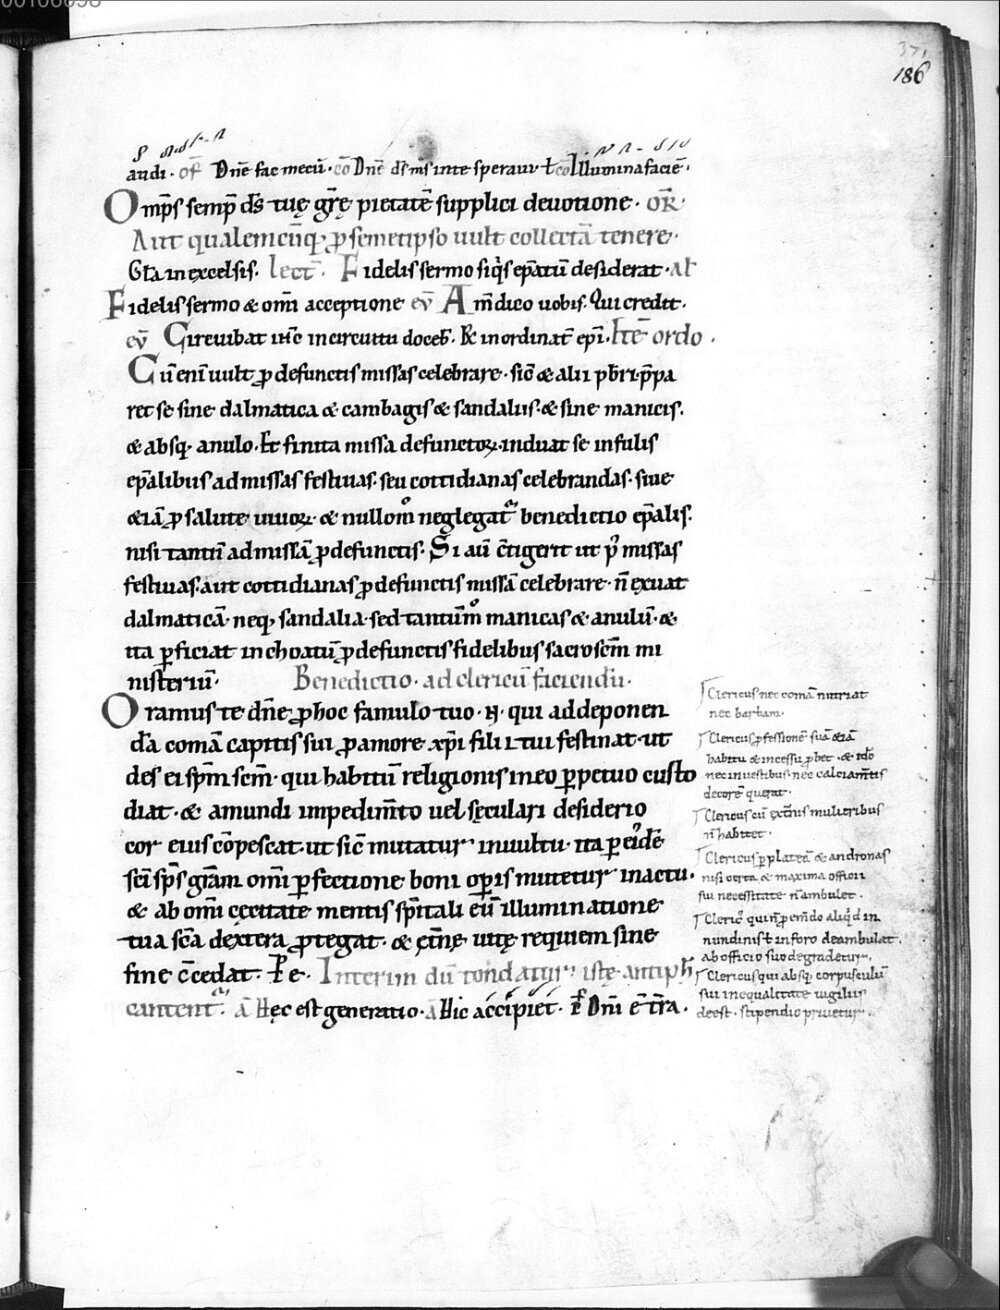 00106098
37,
186
audi. of̄ Dn̄e fac mecū. cō Dn̄e ds̄ ms̄ in te speraui ł cō Illumina faciē.
Omp̄s semp̄ ds̄ tuę gr̄ę pietatē supplici deuotione. OR̄
Aut qualemcūq; p semetipso uult collectā tenere.
Gl̄a in excelsis. lect̄. Fidelis sermo siq̄s ep̄atū desiderat. Al̄
Fidelis sermo & om̄i acceptione eṽ Am̄ dico uobis. Qui credit.
eṽ Circuibat ih̄c in circuitu doceb̄. Rc̄ in ordinat̄ ep̄i. Itē ordo.
Cū eni uult p defunctis missas celebrare. sic̄ & alii pb̄ri p̄pa
ret se sine dalmatica & cambagis & sandaliis. & sine manicis.
& absq; anulo. Et finita missa defunctoꝝ. induat se infulis
ep̄alibus ad missas festiuas. seu cottidianas celebrandas. siue
&iā p salute uiuoꝝ. & nullom̊ neglegat᷑ benedictio ep̄alis.
nisi tantū ad missā p defunctis. Si aū c̄tigerit ut p᷒ missas
festiuas. aut cottidianas p defunctis missā celebrare. n̄ exuat
dalmaticā. neq; sandalia. sed tantūm̊ manicas & anulū. &
ita pficiat inchoatū p defunctis fidelibus sacrosc̄m mi
nisteriū. Benedictio. ad clericū faciendū.
Oramus te dn̄e p hoc famulo tuo. N. qui ad deponen
dā comā capitis sui p amore xp̄i filii tui festinat. ut
des ei sp̄m sc̄m. qui habitū religionis in eo ppetuo custo
diat. & a mundi impedim̄to uel sęculari desiderio
cor eius cōpescat. ut sic̄ mutatur in uultu. ita p ei᷒dē
sc̄i sp̄s grām om̄i pfectione boni opis mutetur in actu.
& ab om̄i cęcitate mentis sp̄itali eū illuminatione
tua sc̄a dextera ptegat. & ęt̄nę uitę requiem sine
fine c̄cedat. Pe. Interim dū tondatur istę antiph
cantent᷑. ā Hęc est generatio. ā Hic accipiet. P̄ Dn̄i ē t̄ra.
Clericus nec comā nutriat
nec barbam.
Clericus pfessionē suā &iā
habitu & incessu pbet. & idō
nec in uestibus. nec calciam̄tis
decorē querat.
Clericus cū ext̄nis mulieribus
n̄ habitet.
Clericus p plateā & andronas
nisi certa & maxima officii
sui necessitate n̄ ambulet.
Cleric᷒ qui n̄ p em̄do aliq̇d in
nundinis ł in foro deambulat.
ab officio suo degradetur.
Clericus qui absq; corpusculū
sui inequalitate uigiliis
deest. stipendio priuetur.